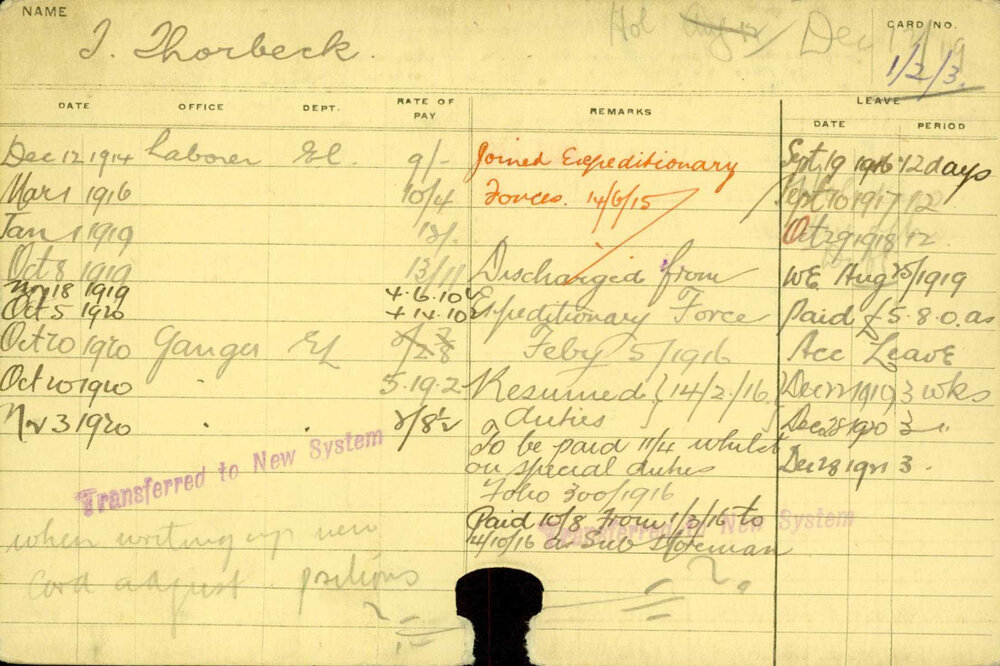 NAME
T. Thorbeck.
Hol Aug Dec 17/19
CARD NO.
1/2/3.
DATE OFFICE DEPT. RATE OF PAY REMARKS LEAVE
DATE PERIOD
Dec 12 1914 Laborer El. 9/- Joined Expeditionary Sept 19 1916 12 days
Mar 1 1916 10/4 Forces. 14/6/15 Sept 10 1917 12
Jan 1 1919 12/. Oct 29 1918 12
Oct 8 1919 13/11 Discharged from WE Aug 25/1919
Nov 18 1919 4.6.10 Expeditionary Force Paid £5.8.0. as
Oct 5 1920 4.14.10 Feby 5/1916 Acc Leave
Oct 20 1920 Ganger El
Oct 20 1920 " " 5.19.2 Resumed {14/2/16} Dec 22 1919 3 wks
Nov 3 1920 " " 2/8½ duties Dec 28 1920 3 "
To be paid 11/4 whilst Dec 28 1921 3 .
on special duties
Folio 300/1916
Paid 10/8 from 1/3/16 to
4/10/16 as Sub Storeman
Transferred to New System
Transferred to New System
when writing up new
card adjust